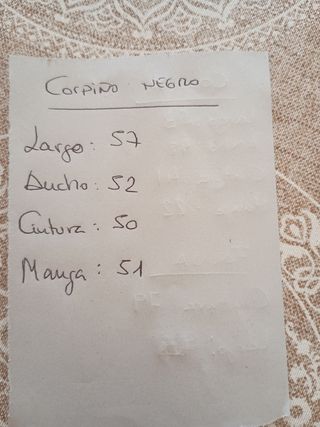 CORPIÑO NEGRO
Largo: 57
Ancho: 52
Cintura: 50
Manga: 51